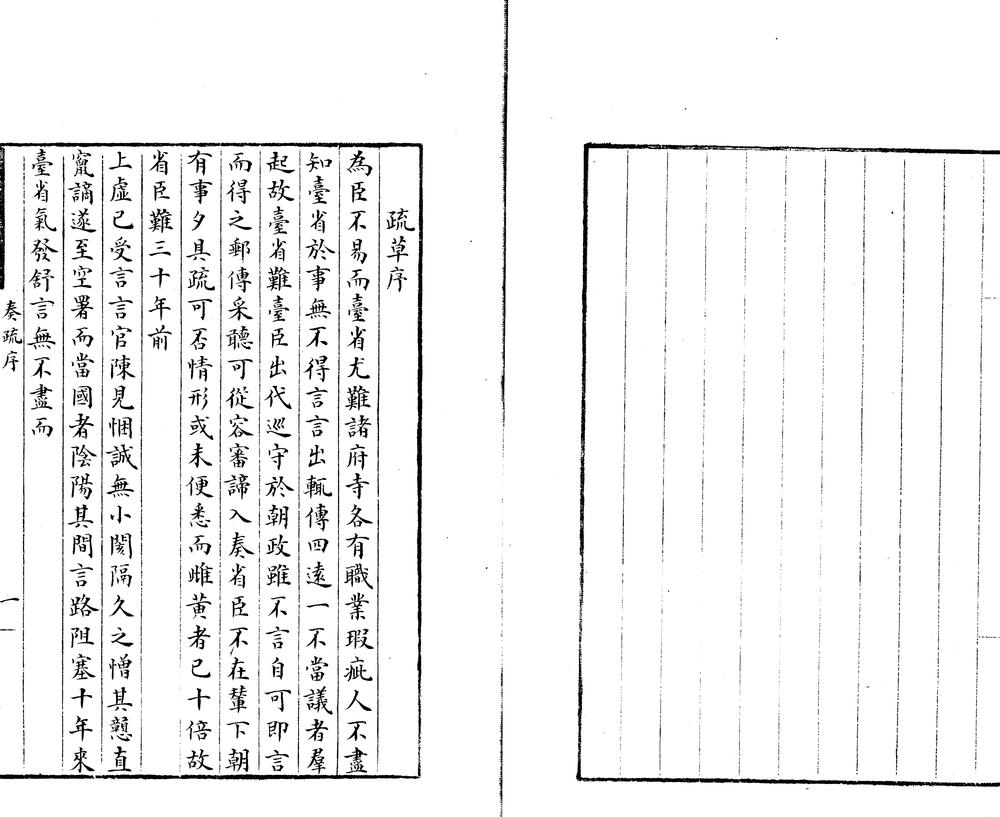 疏草序
為臣不易而臺省尤難諸府寺各有職業瑕疵人不盡
知臺省於事無不得言言出輒傳四遠一不當議者羣
起故臺省難臺臣出代巡守於朝政雖不言自可即言
而得之郵傳采聽可從容審諦入奏省臣不在輦下朝
有事夕具疏可否情形或未便悉而雌黃者已十倍故
省臣難三十年前
上虛已受言言官陳見悃誠無小閡隔久之憎其戇直
竄謫遂至空署而當國者陰陽其間言路阻塞十年來
臺省氣發舒言無不盡而
奏疏序
一